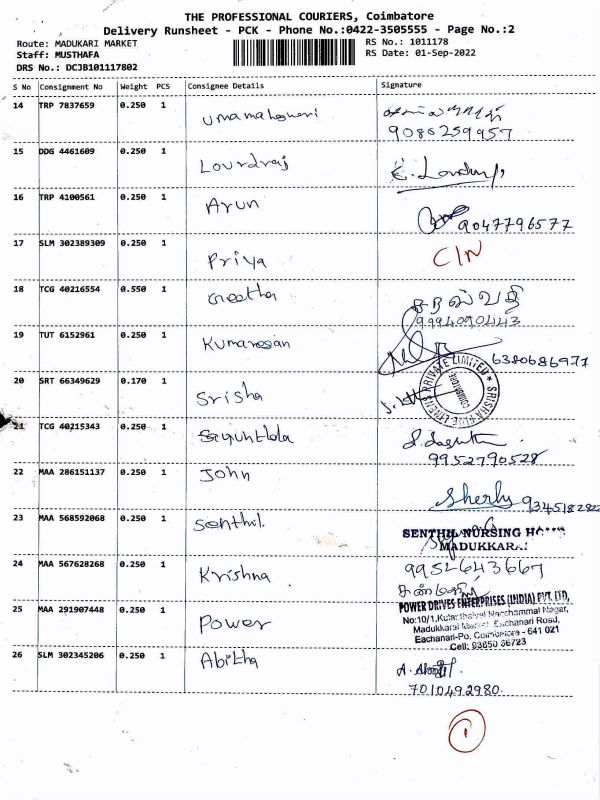 THE PROFESSIONAL COURIERS, Coimbatore
Delivery Runsheet - PCK - Phone No.:0422-3505555 - Page No.:2
Route: MADUKARI MARKET
Staff: MUSTHAFA
DRS No.: DCJB101117802
RS No.: 1011178
RS Date: 01-Sep-2022
S No Consignment No Weight PCS Consignee Details Signature
14 TRP 7837659 0.250 1 Umamaheswari
9086259957
15 DDG 4461609 0.250 1 Lourdraj
16 TRP 4100561 0.250 1 Arun 9047796577
17 SLM 302389309 0.250 1 Priya C/N
18 TCG 40216554 0.550 1 Geetha சரஸ்வதி
9994090443
19 TUT 6152961 0.250 1 Kumaresan 6380686971
20 SRT 66349629 0.170 1 Srisha
SRISHA PRIVATE LIMITED COIMBATORE
21 TCG 40215343 0.250 1 Saguntala
9952790528
22 MAA 286151137 0.250 1 John Sherly
23 MAA 568592068 0.250 1 Senthil. SENTHIL NURSING
MADUKKARAI
24 MAA 567628268 0.250 1 Krishna 9952643667
25 MAA 291907448 0.250 1 Power POWER DRIVES ENTERPRISES (INDIA) PVT. LTD,
No:10/1, Nagar,
Madukkarai Market Eachanari Road,
Eachanari-Po, Coimbatore - 641 021
Cell: 93650 36723
26 SLM 302345206 0.250 1 Abitha
7010492980.
1